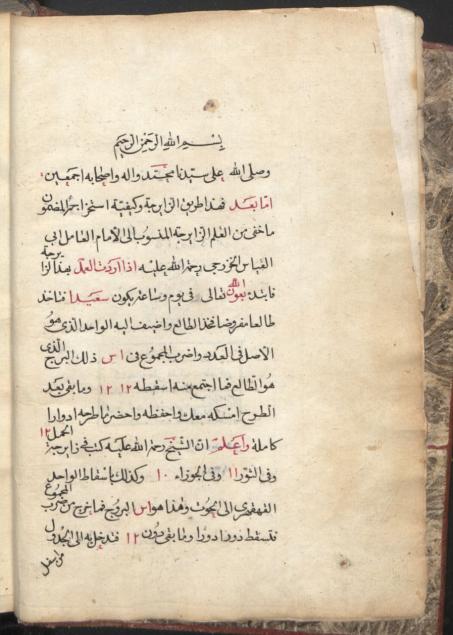 بسم الله الرحمن الرحيم
وصلى الله على سيدنا محمد واله واصحابه اجمعين
اما بعد فهذا طريق الزايرجة وكيفية استخراج المضمون
ما خفى من العلم الزايرجة المنسوب الى الامام الفاضل ابى
العباس الخزرجي رحمة الله عليه اذا اردت العمل بهذا الزايرجة
فابتد بعون الله تعالى فى يوم وساعة يكون سعيدا فتاخذ
طالعا مفروضا فخذ الطالع واضيف اليه الواحد الذى هو
الاصل فى العدد واضرب المجموع فى اس ذلك البرج الذى
هو الطالع فما اجتمع منه اسقطه ١٢ ١٢ وما بقى بعد
الطرح امسكه معك واحفظه واحضر ما طرحه ادوارا
كاملة واعلم ان الشيخ رحمة الله عليه كتب فى زايرجة الحمل ١٢
وفى الثور ١١ وفى الجوزاء ١٠ وكذلك باسقاط الواحد
القهقرى الى الحوت وهذا هو اس البروج فما يخرج من ضرب المجموع
فلسقط دورا دورا وما بقى دون ١٢ فتدخل به الى الجدول
من اسفل